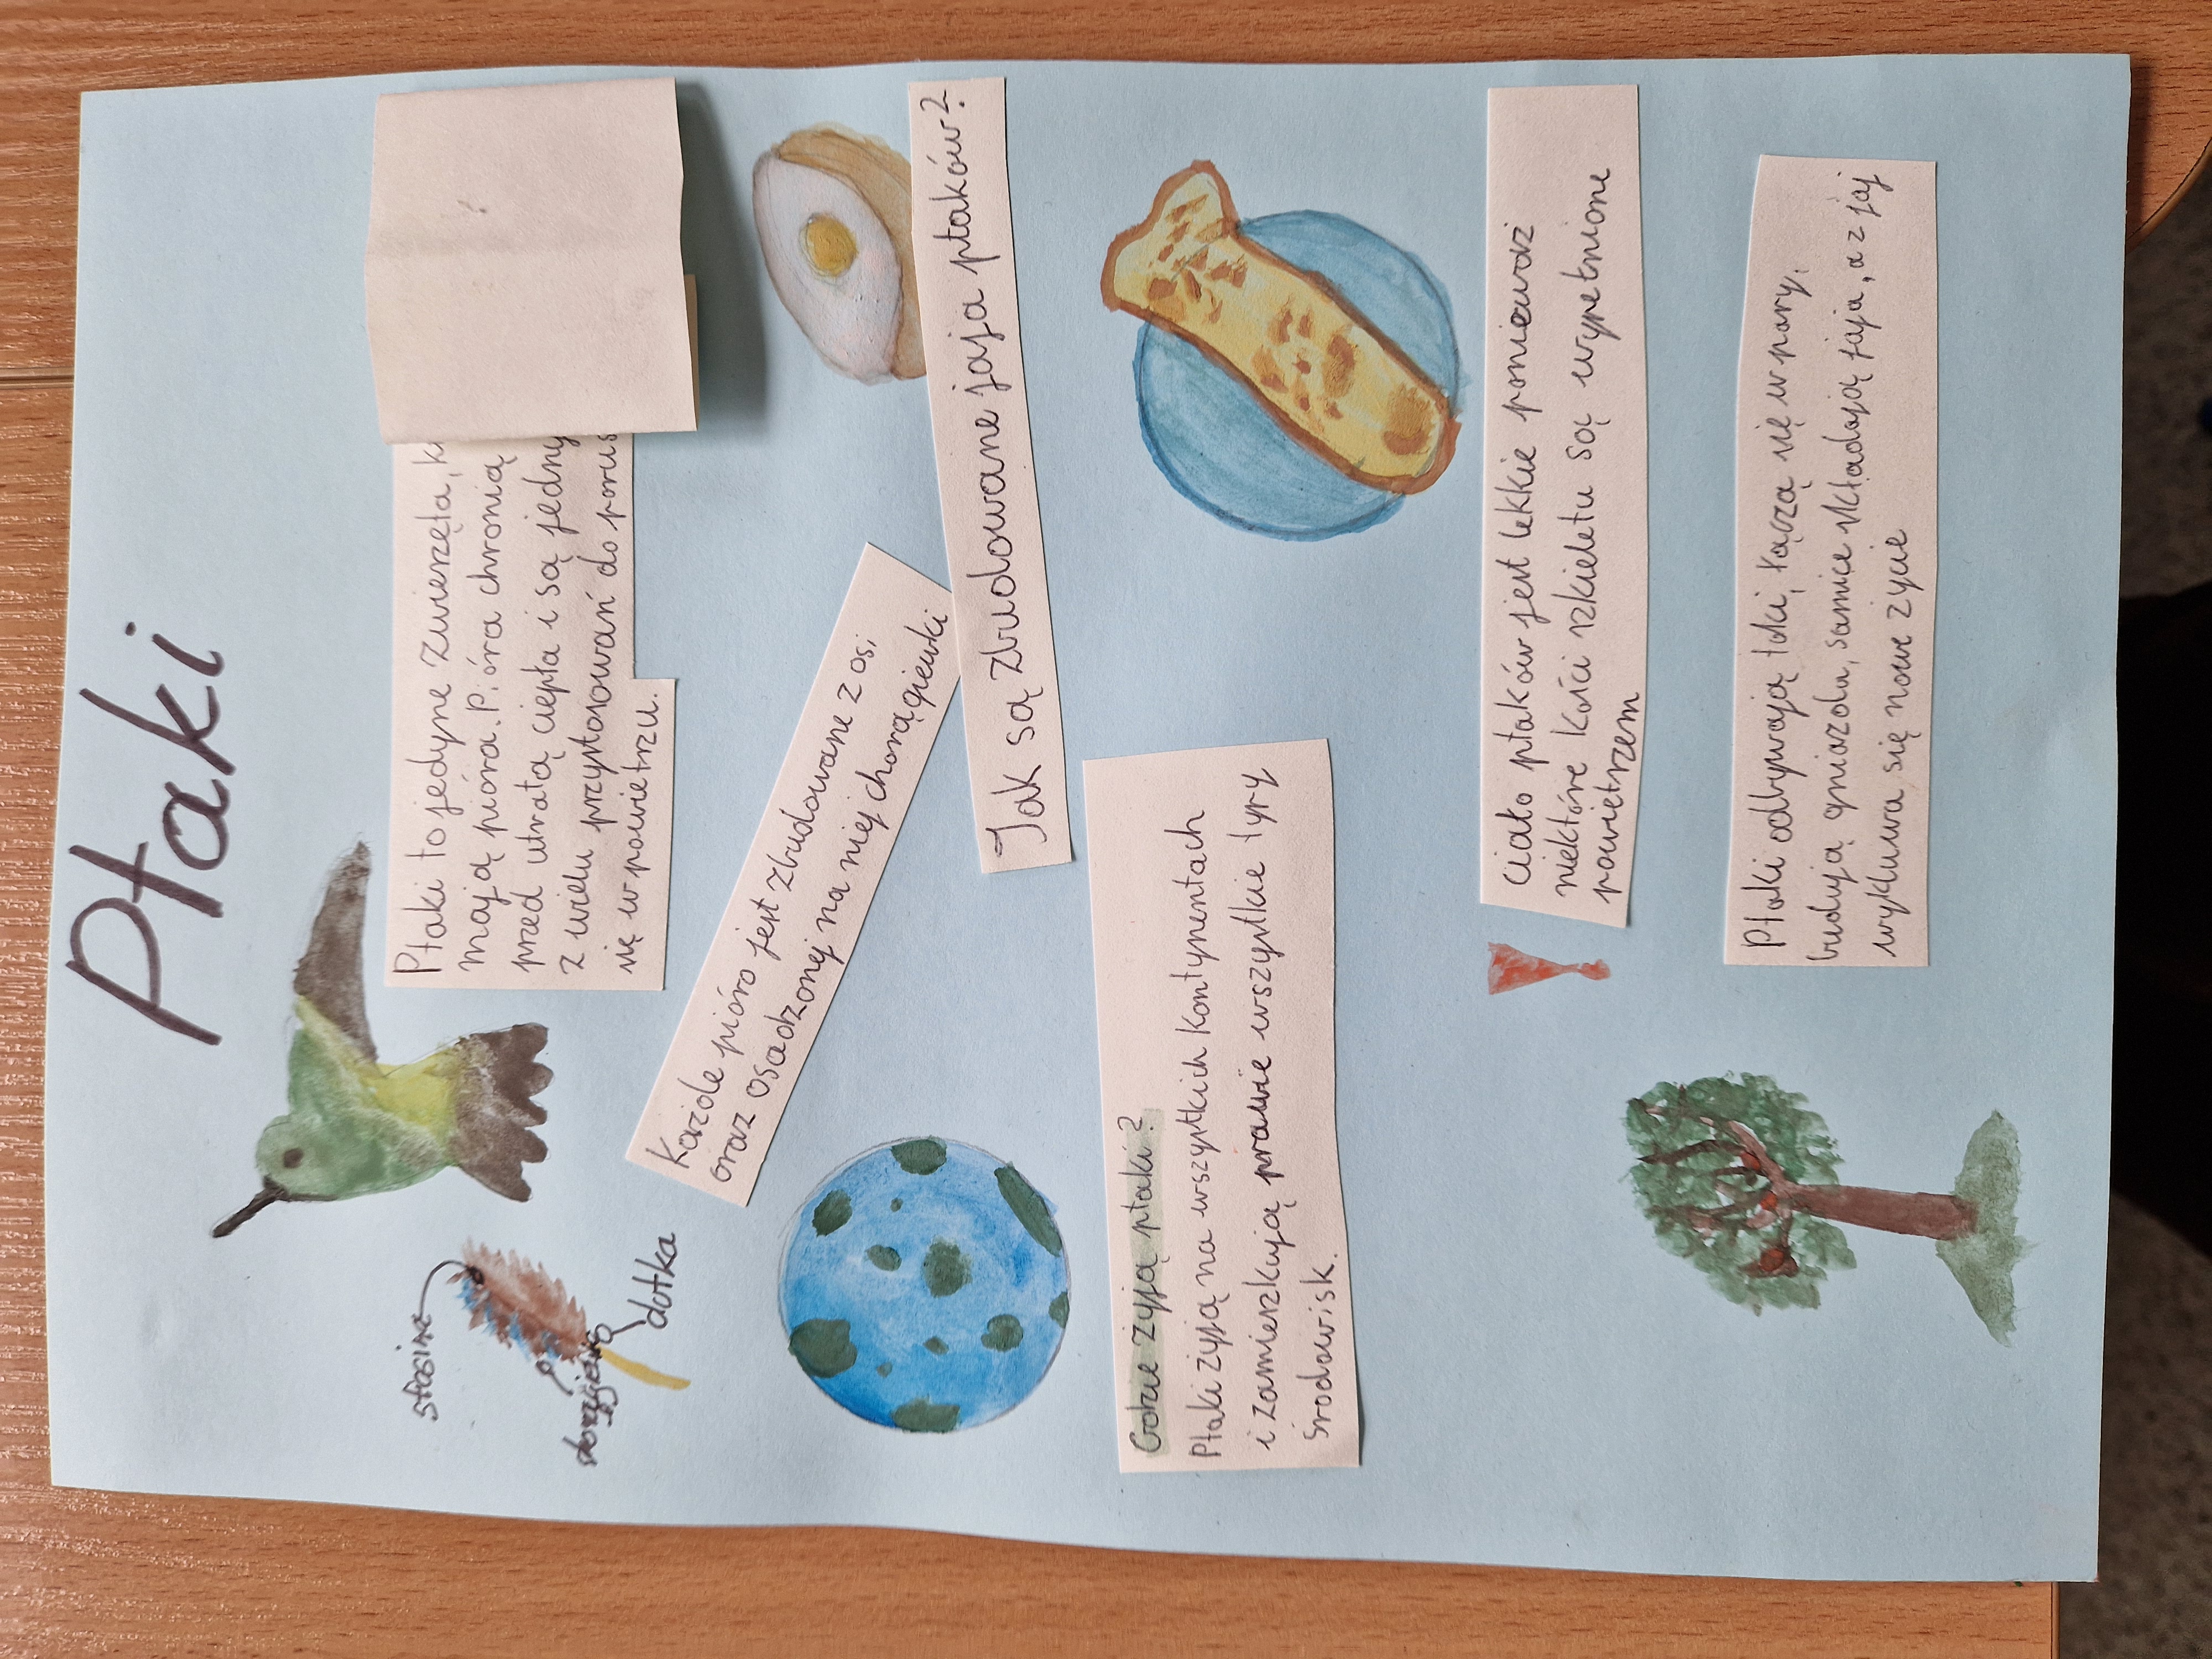 Ptaki
Ptaki to jedyne zwierzęta, k
mają pióra. Pióra chronią
przed utratą ciepła i są jedny
z wielu przystosowań do porus
się w powietrzu.
stosina
dutka
Każde pióro jest zbudowane z osi
oraz osadzonej na niej chorągiewki
Jak są zbudowane jaja ptaków?
Gdzie żyją ptaki?
Ptaki żyją na wszystkich kontynentach
i zamieszkują prawie wszystkie typy
środowisk.
Ciało ptaków jest lekkie ponieważ
niektóre kości szkieletu są wypełnione
powietrzem
Ptaki odbywają toki, łączą się w pary,
budują gniazda, samice składają jaja, a z jaj
wykluwa się nowe życie